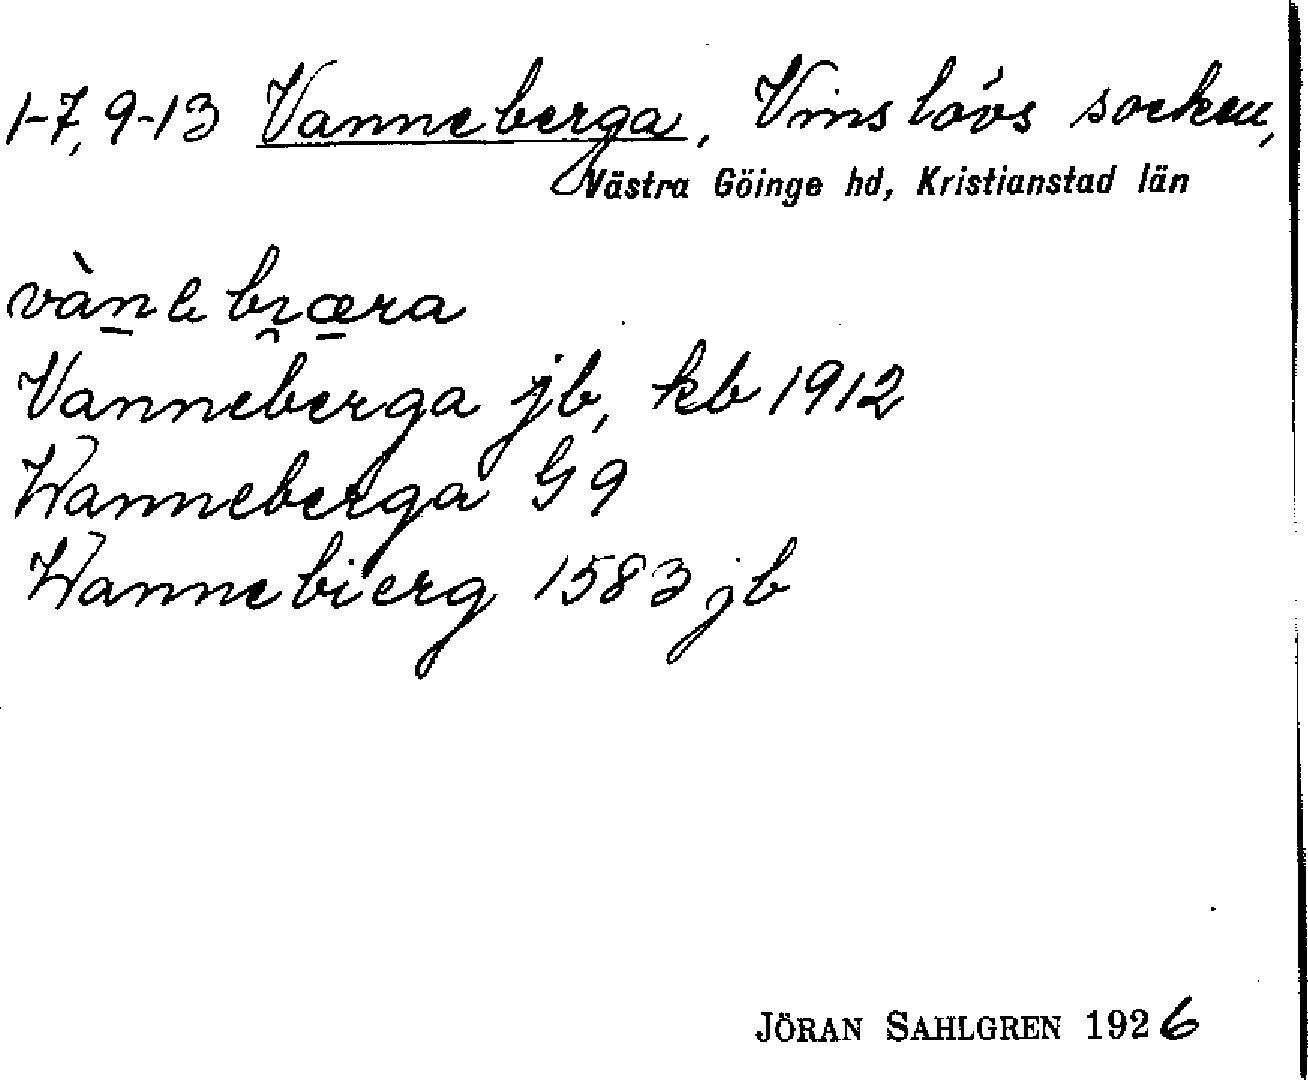 1-7, 9-13 Vanneberga, Vinslövs socken,
Västra Göinge hd, Kristianstad län
vàn̲ebræ̲ra
Vanneberga jb, kb 1912
Wanneberga G 9
Wannebierg 1583 jb
JÖRAN SAHLGREN 1926